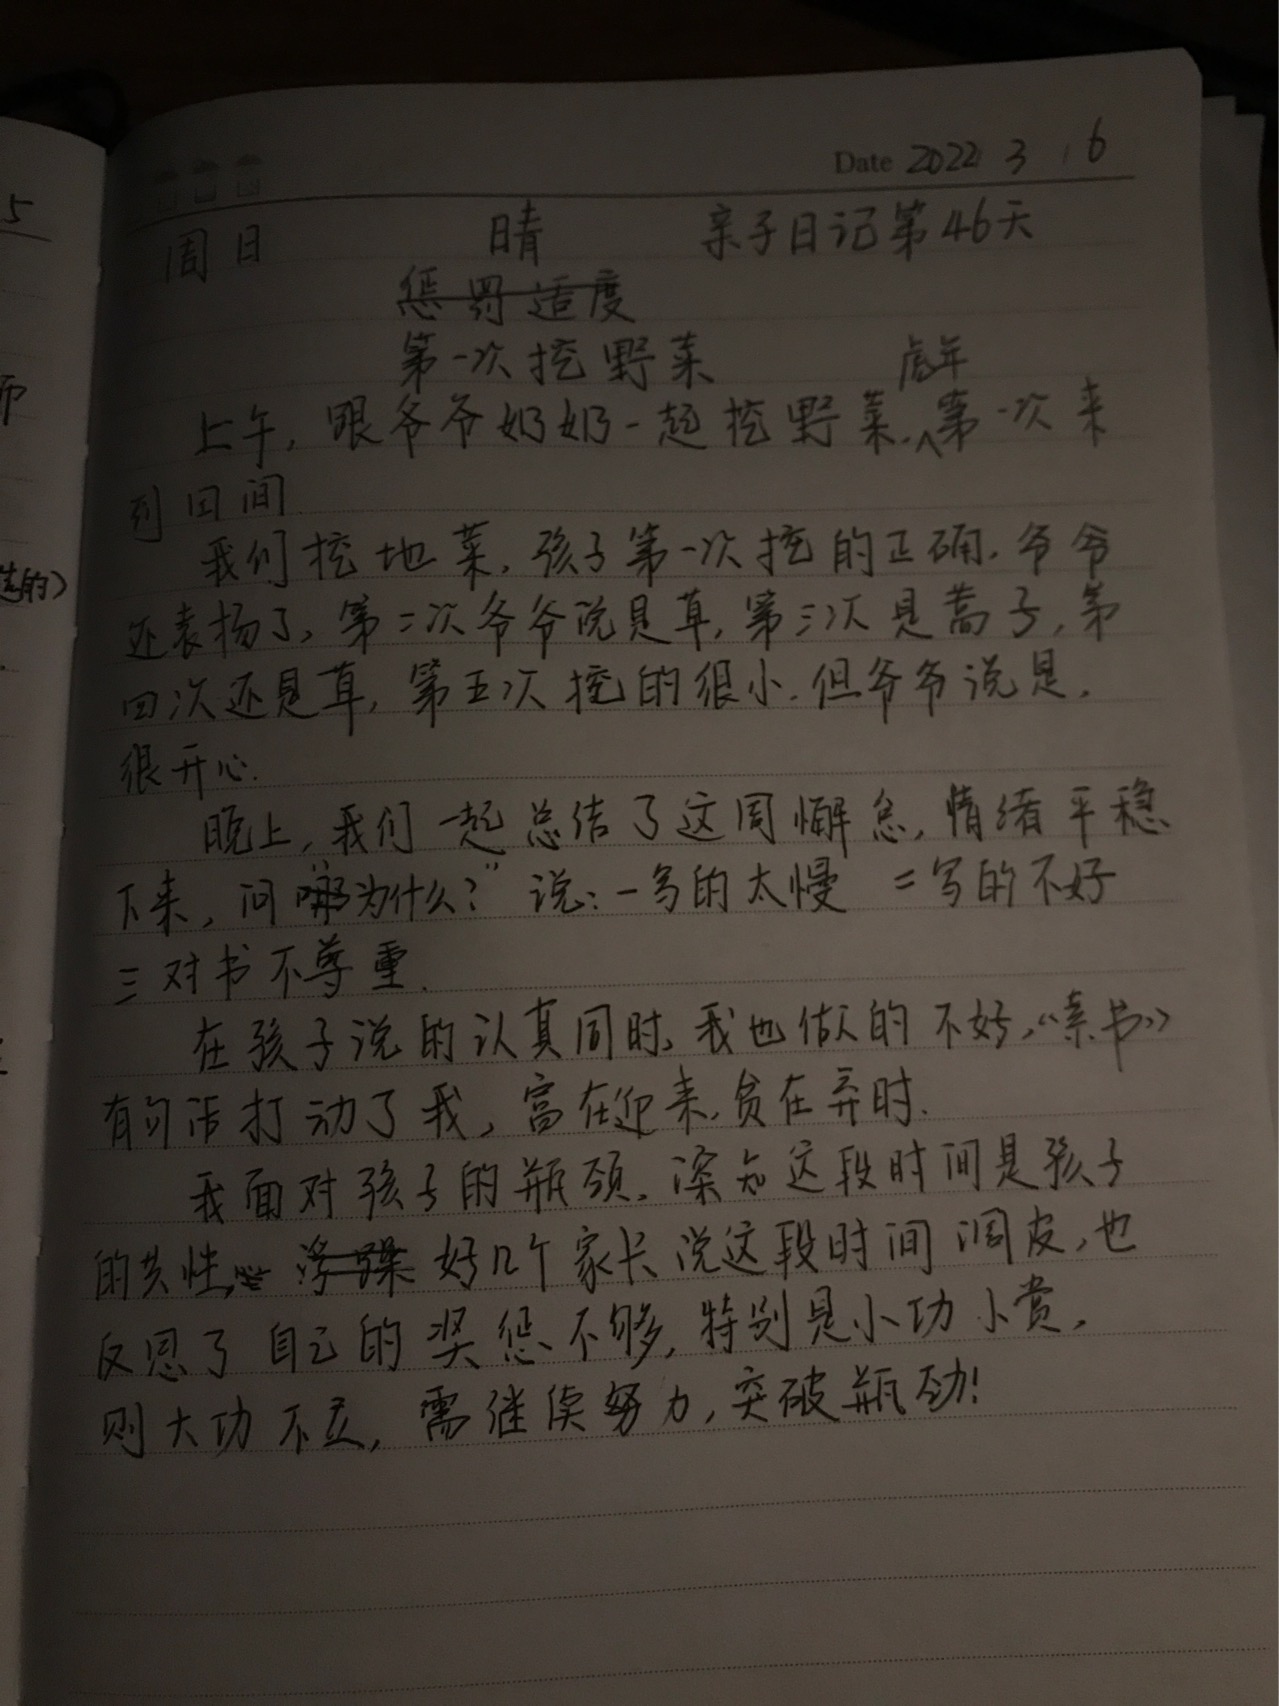 5
Date 2022 3 6
周日 晴 亲子日记第46天
惩罚适度
第一次挖野菜
虎年
上午,跟爷爷奶奶一起挖野菜.第一次来
到田间
我们挖地菜,孩子第一次挖的正确.爷爷
还表扬了,第二次爷爷说是草,第三次是蒿子,第
四次还是草,第五次挖的很小.但爷爷说是.
很开心.
晚上,我们一起总结了这周懈怠,情绪平稳
下来,问"为什么?"说:一写的太慢 二写的不好
三对书不尊重.
在孩子说的认真同时,我也做的不好,《素书》
有句话打动了我,富在迎来,贫在弃时.
我面对孩子的瓶颈.深知这段时间是孩子
的共性, 浮躁 好几个家长说这段时间调皮,也
反思了自己的奖惩不够,特别是小功小赏,
则大功不立,需继续努力,突破瓶劲!
师
选的)